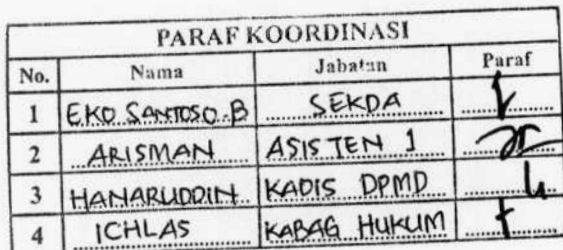 PARAF KOORDINASI
No. Nama Jabatan Paraf
1 EKO SANTOSO.B SEKDA
2 ARISMAN ASISTEN 1
3 HANARUDDIN KADIS DPMD
4 ICHLAS KABAG HUKUM